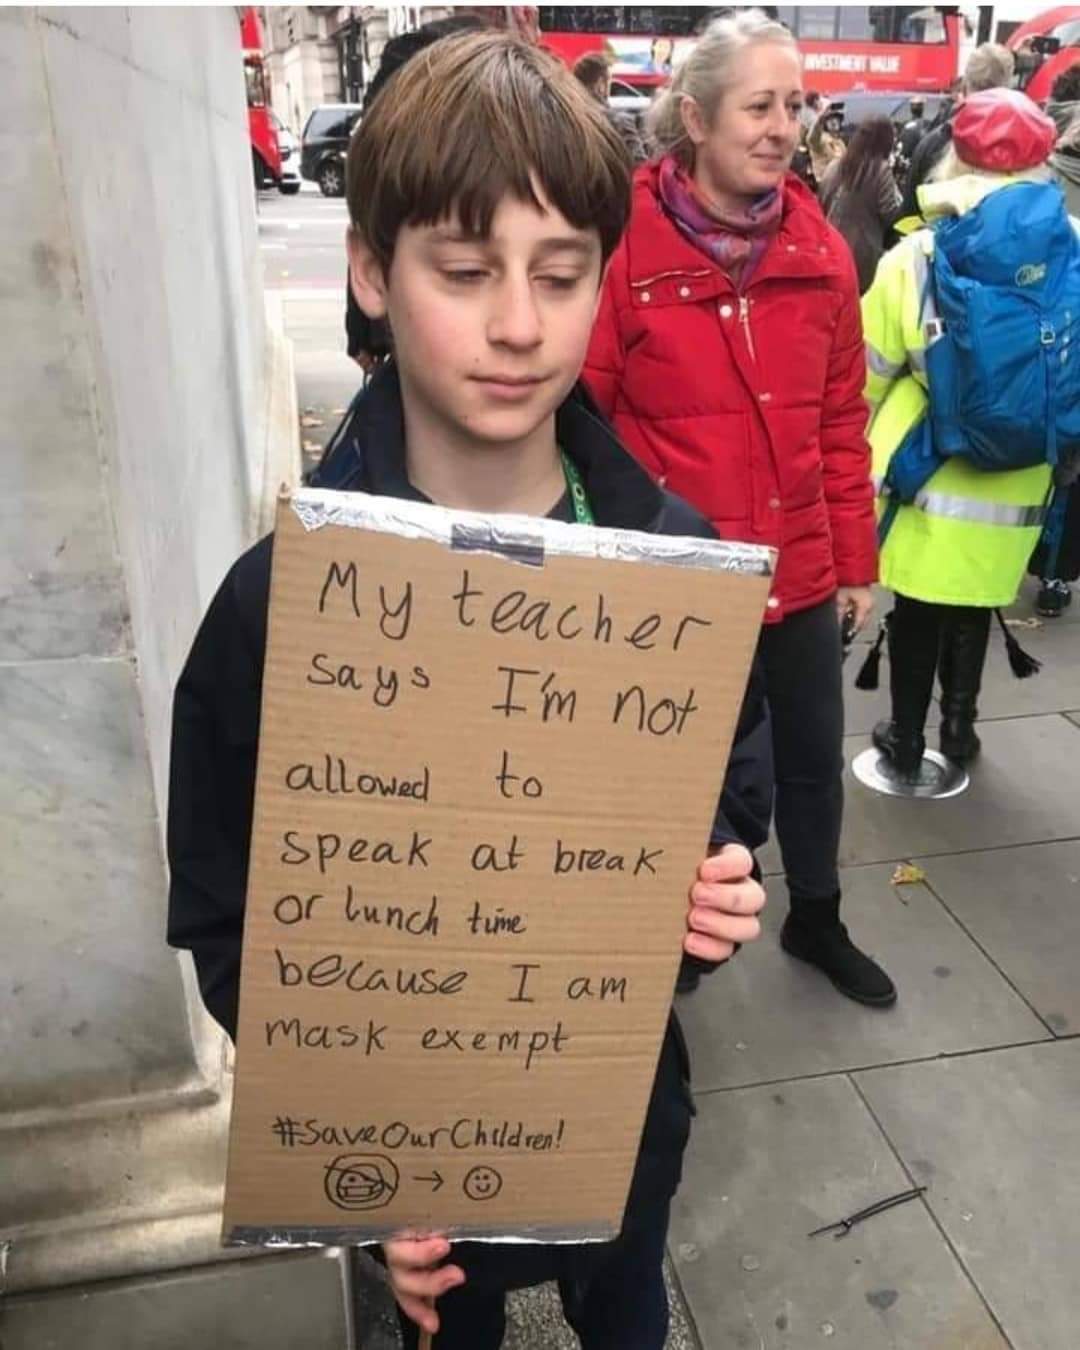 INVESTMENT VALUE
My teacher
says I'm not
allowed to
speak at break
or lunch time
because I am
mask exempt
#SaveOurChildren!